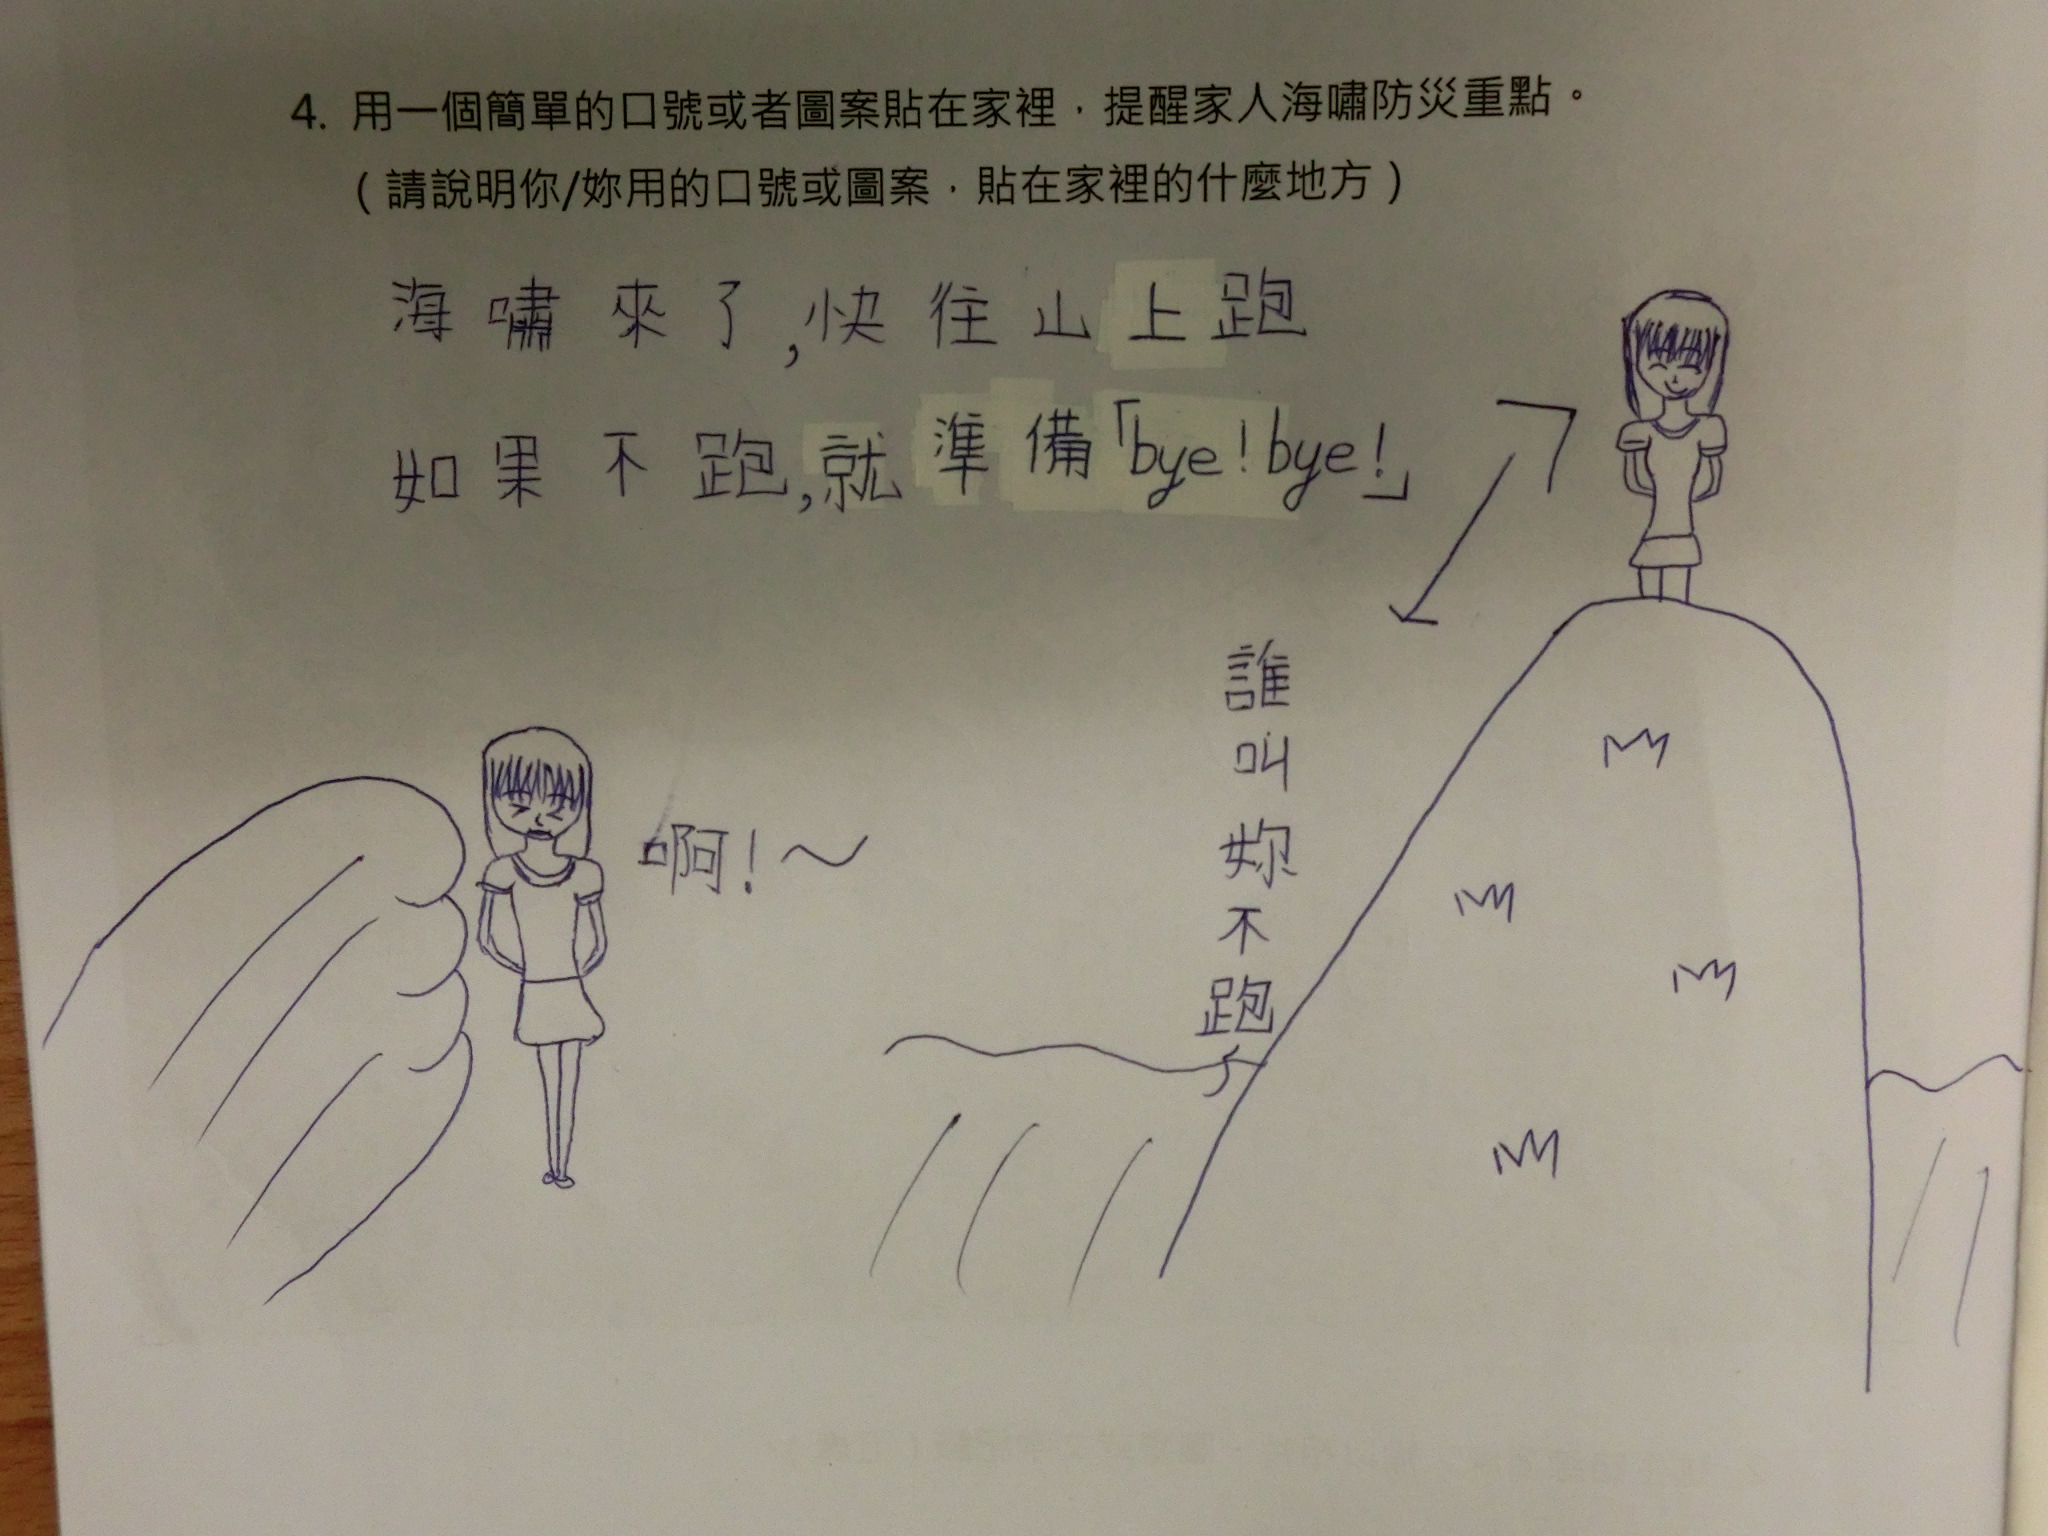 4. 用一個簡單的口號或者圖案貼在家裡，提醒家人海嘯防災重點。
(請說明你/妳用的口號或圖案，貼在家裡的什麼地方)
海嘯來了,快往山上跑
如果不跑,就準備「bye!bye!」
啊!～
誰叫妳不跑